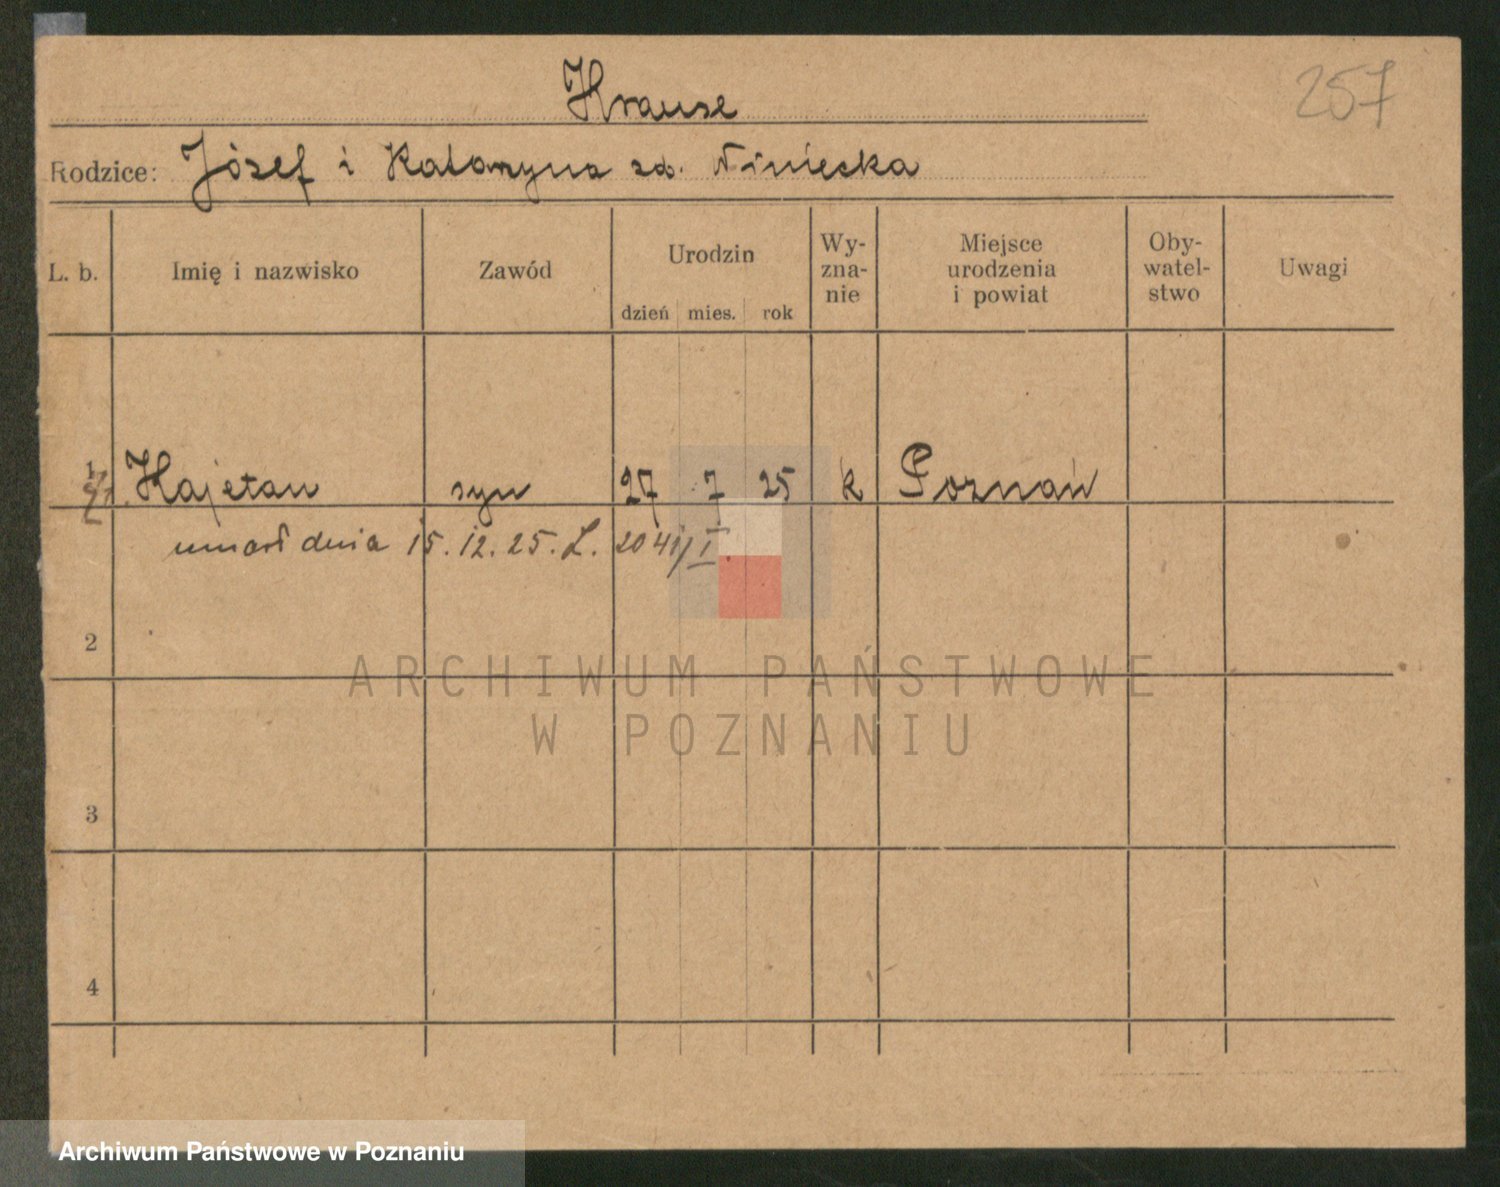 257
Krause
Rodzice: Józef i Katarzyna zd. Niniecka
L. b.
Imię i nazwisko
Zawód
Urodzin
dzień mies. rok
Wy-
zna-
nie
Miejsce
urodzenia
i powiat
Oby-
watel-
stwo
Uwagi
1 Kajetan syn 27 7 25 k Poznań
umarł dnia 15.12.25. L. 2041/I.
2
3
4
ARCHIWUM PAŃSTWOWE
W POZNANIU
Archiwum Państwowe w Poznaniu